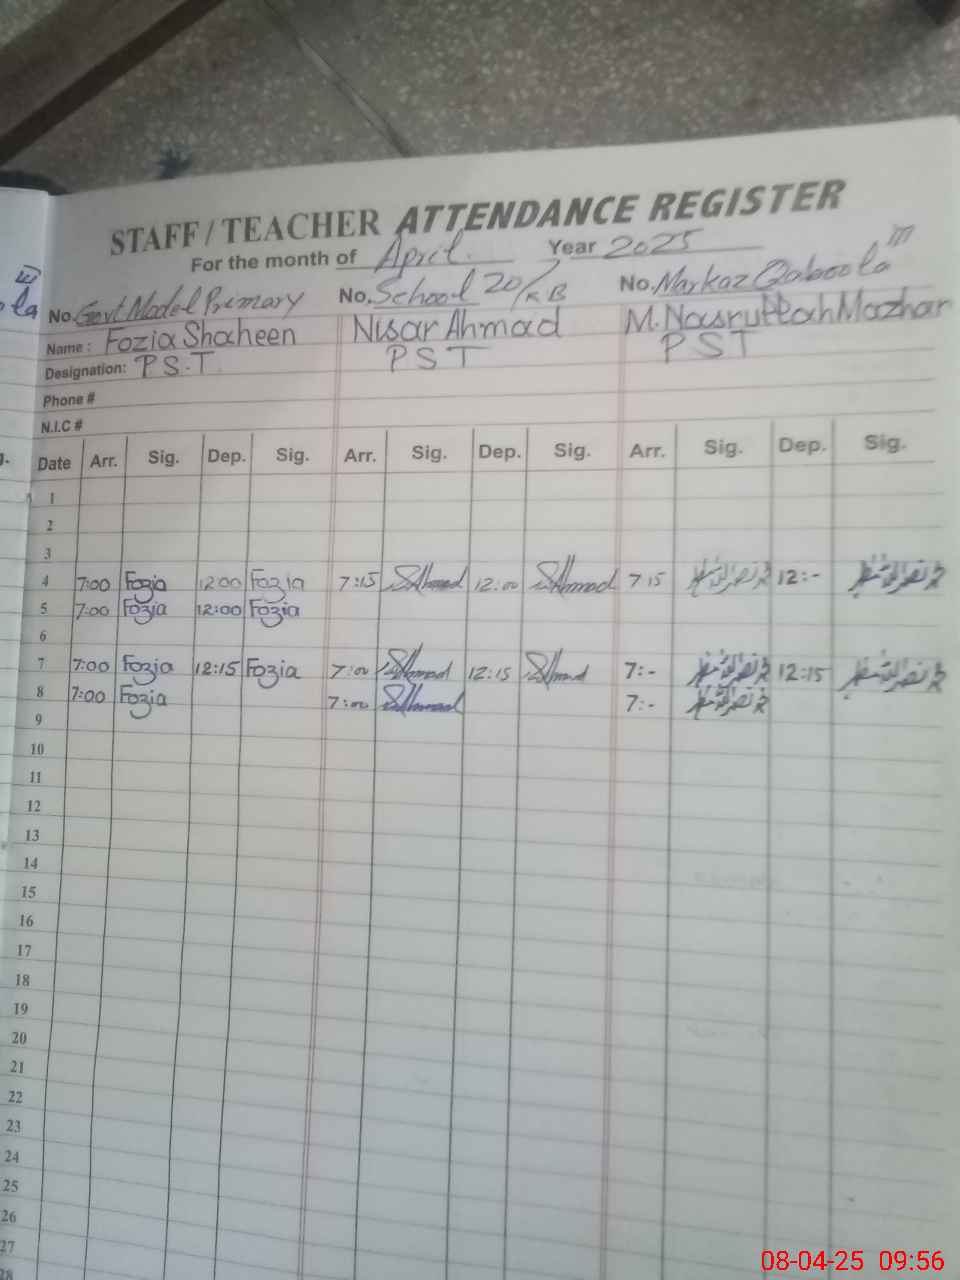 STAFF / TEACHER ATTENDANCE REGISTER
For the month of April. Year 2025
No. Govt Model Primary No. School 20/KB No. Markaz Qaboola III
Name : Fozia Shaheen Nisar Ahmad M. Nasrullah Mazhar
Designation: P.S.T. PST PST
Phone #
N.I.C #
Date Arr. Sig. Dep. Sig. Arr. Sig. Dep. Sig. Arr. Sig. Dep. Sig.
1
2
3
4 7:00 Fozia 12:00 Fozia 7:15 12:00 7 15 12:-
5 7:00 Fozia 12:00 Fozia
6
7 7:00 Fozia 12:15 Fozia 7:00 12:15 7:- 12:15
8 7:00 Fozia 7:00 7:-
9
10
11
12
13
14
15
16
17
18
19
20
21
22
23
24
25
26
27
28
08-04-25 09:56